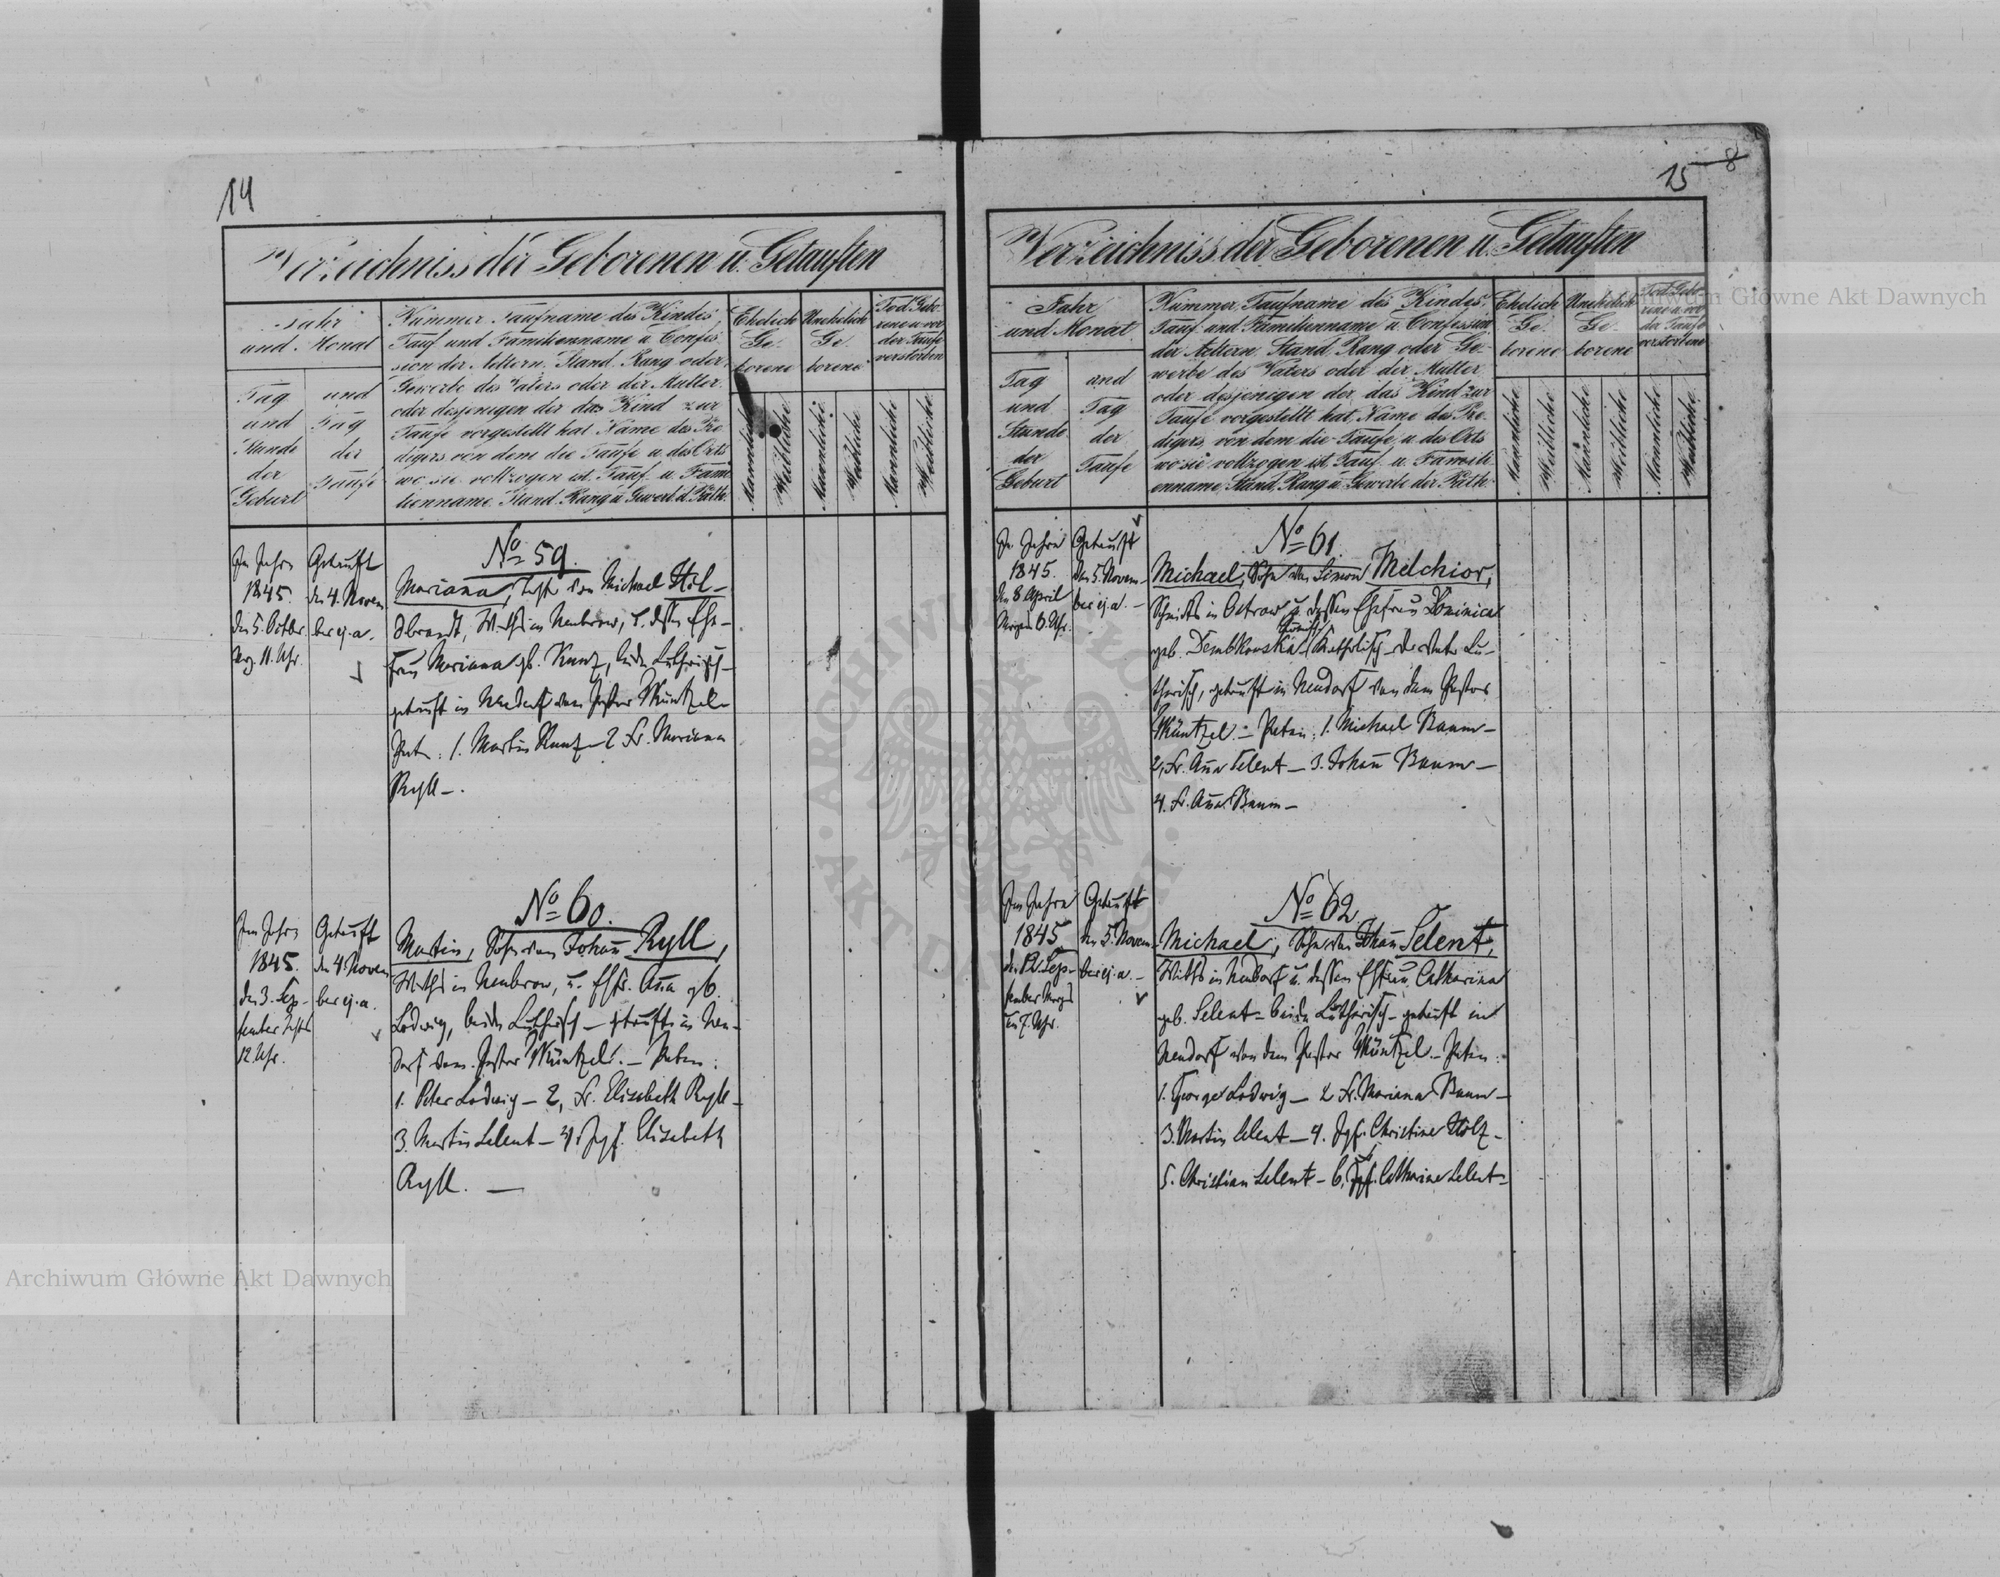 14
Verzeichniss der Geborenen u. Getauften
Jahr
und Monat
Tag
und
Stunde
der
Geburt
und
Tag
der
Taufe
Nummer Taufname des Kindes,
Tauf und Familienname u. Confes-
sion der Aeltern. Stand, Rang oder
Gewerbe des Vaters oder der Mutter
oder desjenigen der das Kind zur
Taufe vorgestellt hat. Name des Pre-
digers von dem die Taufe u. des Orts
wo sie vollzogen ist. Tauf u. Fami-
lienname, Stand, Rang u. Gewerb d. Path.
Ehelich
Ge-
borene
Unehelich
Ge-
borene
Tod Gebo-
rene u. vor
der Taufe
verstorben
Mannliche
Weibliche
Mannliche
Weibliche
Mannliche
Weibliche
Im Jahre
1845.
den 5. Octbr.
Mrg. 11. Uhr.
Getauft
den 4. Novem
ber ej. a.
No 59.
Mariana, Tocht. von Michael Hil-
debrandt, Wirths in Neubrow, u. dessen Ehe-
frau Mariana gb. Kunz, beide Lutherisch -
getauft in Neudorf vom Pastor Müntzel -
Paten: 1. Martin Kunz - 2 Fr. Mariana
Ryll -.
Im Jahre
1845.
den 3. Sep-
tember
12 Uhr.
Getauft
den 4. Novem
ber ej. a.
No 60.
Martin, Sohn von Johann Ryll,
Wirths in Neubrow, u. Ehfr. Anna gb.
Ludwig, beide Lutherisch - getauft in Neu-
dorf vom Pastor Müntzel. - Paten:
1. Peter Ludwig - 2, Fr. Elisabeth Ryll -
3. Martin Selent - 4. Jgf. Elisabeth
Ryll. -
15 8
Verzeichniss der Geborenen u. Getauften
Jahr
und Monat
Tag
und
Stunde
der
Geburt
und
Tag
der
Taufe
Nummer, Taufname des Kindes,
Tauf und Familienname u. Confession
der Aeltern. Stand, Rang oder Ge-
werbe des Vaters oder der Mutter
oder desjenigen der das Kind zur
Taufe vorgestellt hat. Name des Pre-
digers, von dem die Taufe u. des Orts
wo sie vollzogen ist, Tauf u. Famili-
enname, Stand, Rang u. Gewerbe der Path.
Ehelich
Ge-
borene
Unehelich
Ge-
borene
Tod Gebo-
rene u. vor
der Taufe
verstorbene
Mannliche
Weibliche
Mannliche
Weibliche
Mannliche
Weibliche
Im Jahre
1845.
den 8 April
Morgens 6. Uhr.
Getauft
den 5. Novem-
ber ej. a. -
No 61.
Michael, Sohn des Simon Melchior,
in Ostrow u. dessen Ehefrau Dominica
geb. Dembkowska - Katholisch - der Vater Lu-
therisch, getauft in Neudorf von dem Pastor
Müntzel. - Paten: 1. Michael Baum -
2, Fr. Anna Selent - 3. Johann Baum -
4. Fr. Anna Baum -
Im Jahre
1845
Sep-
tember Morgs
um 7. Uhr.
Getauft
den 5. Novem-
ber ej. a. -
No 62
Michael, Sohn von Johann Selent,
Wirths in Neudorf u. dessen Ehefrau Catharina
geb. Selent - beide Lutherisch - getauft in
Neudorf von dem Pastor Müntzel - Paten:
1. George Ludwig - 2 Fr. Mariana Baum -
3. Martin Selent - 4. Jgfr. Christine Holz -
5. Christian Selent - 6, Jgf. Catharine Selent -
Archiwum Główne Akt Dawnych
Archiwum Główne Akt Dawnych
ARCHIWUM GŁÓWNE AKT DAWNYCH